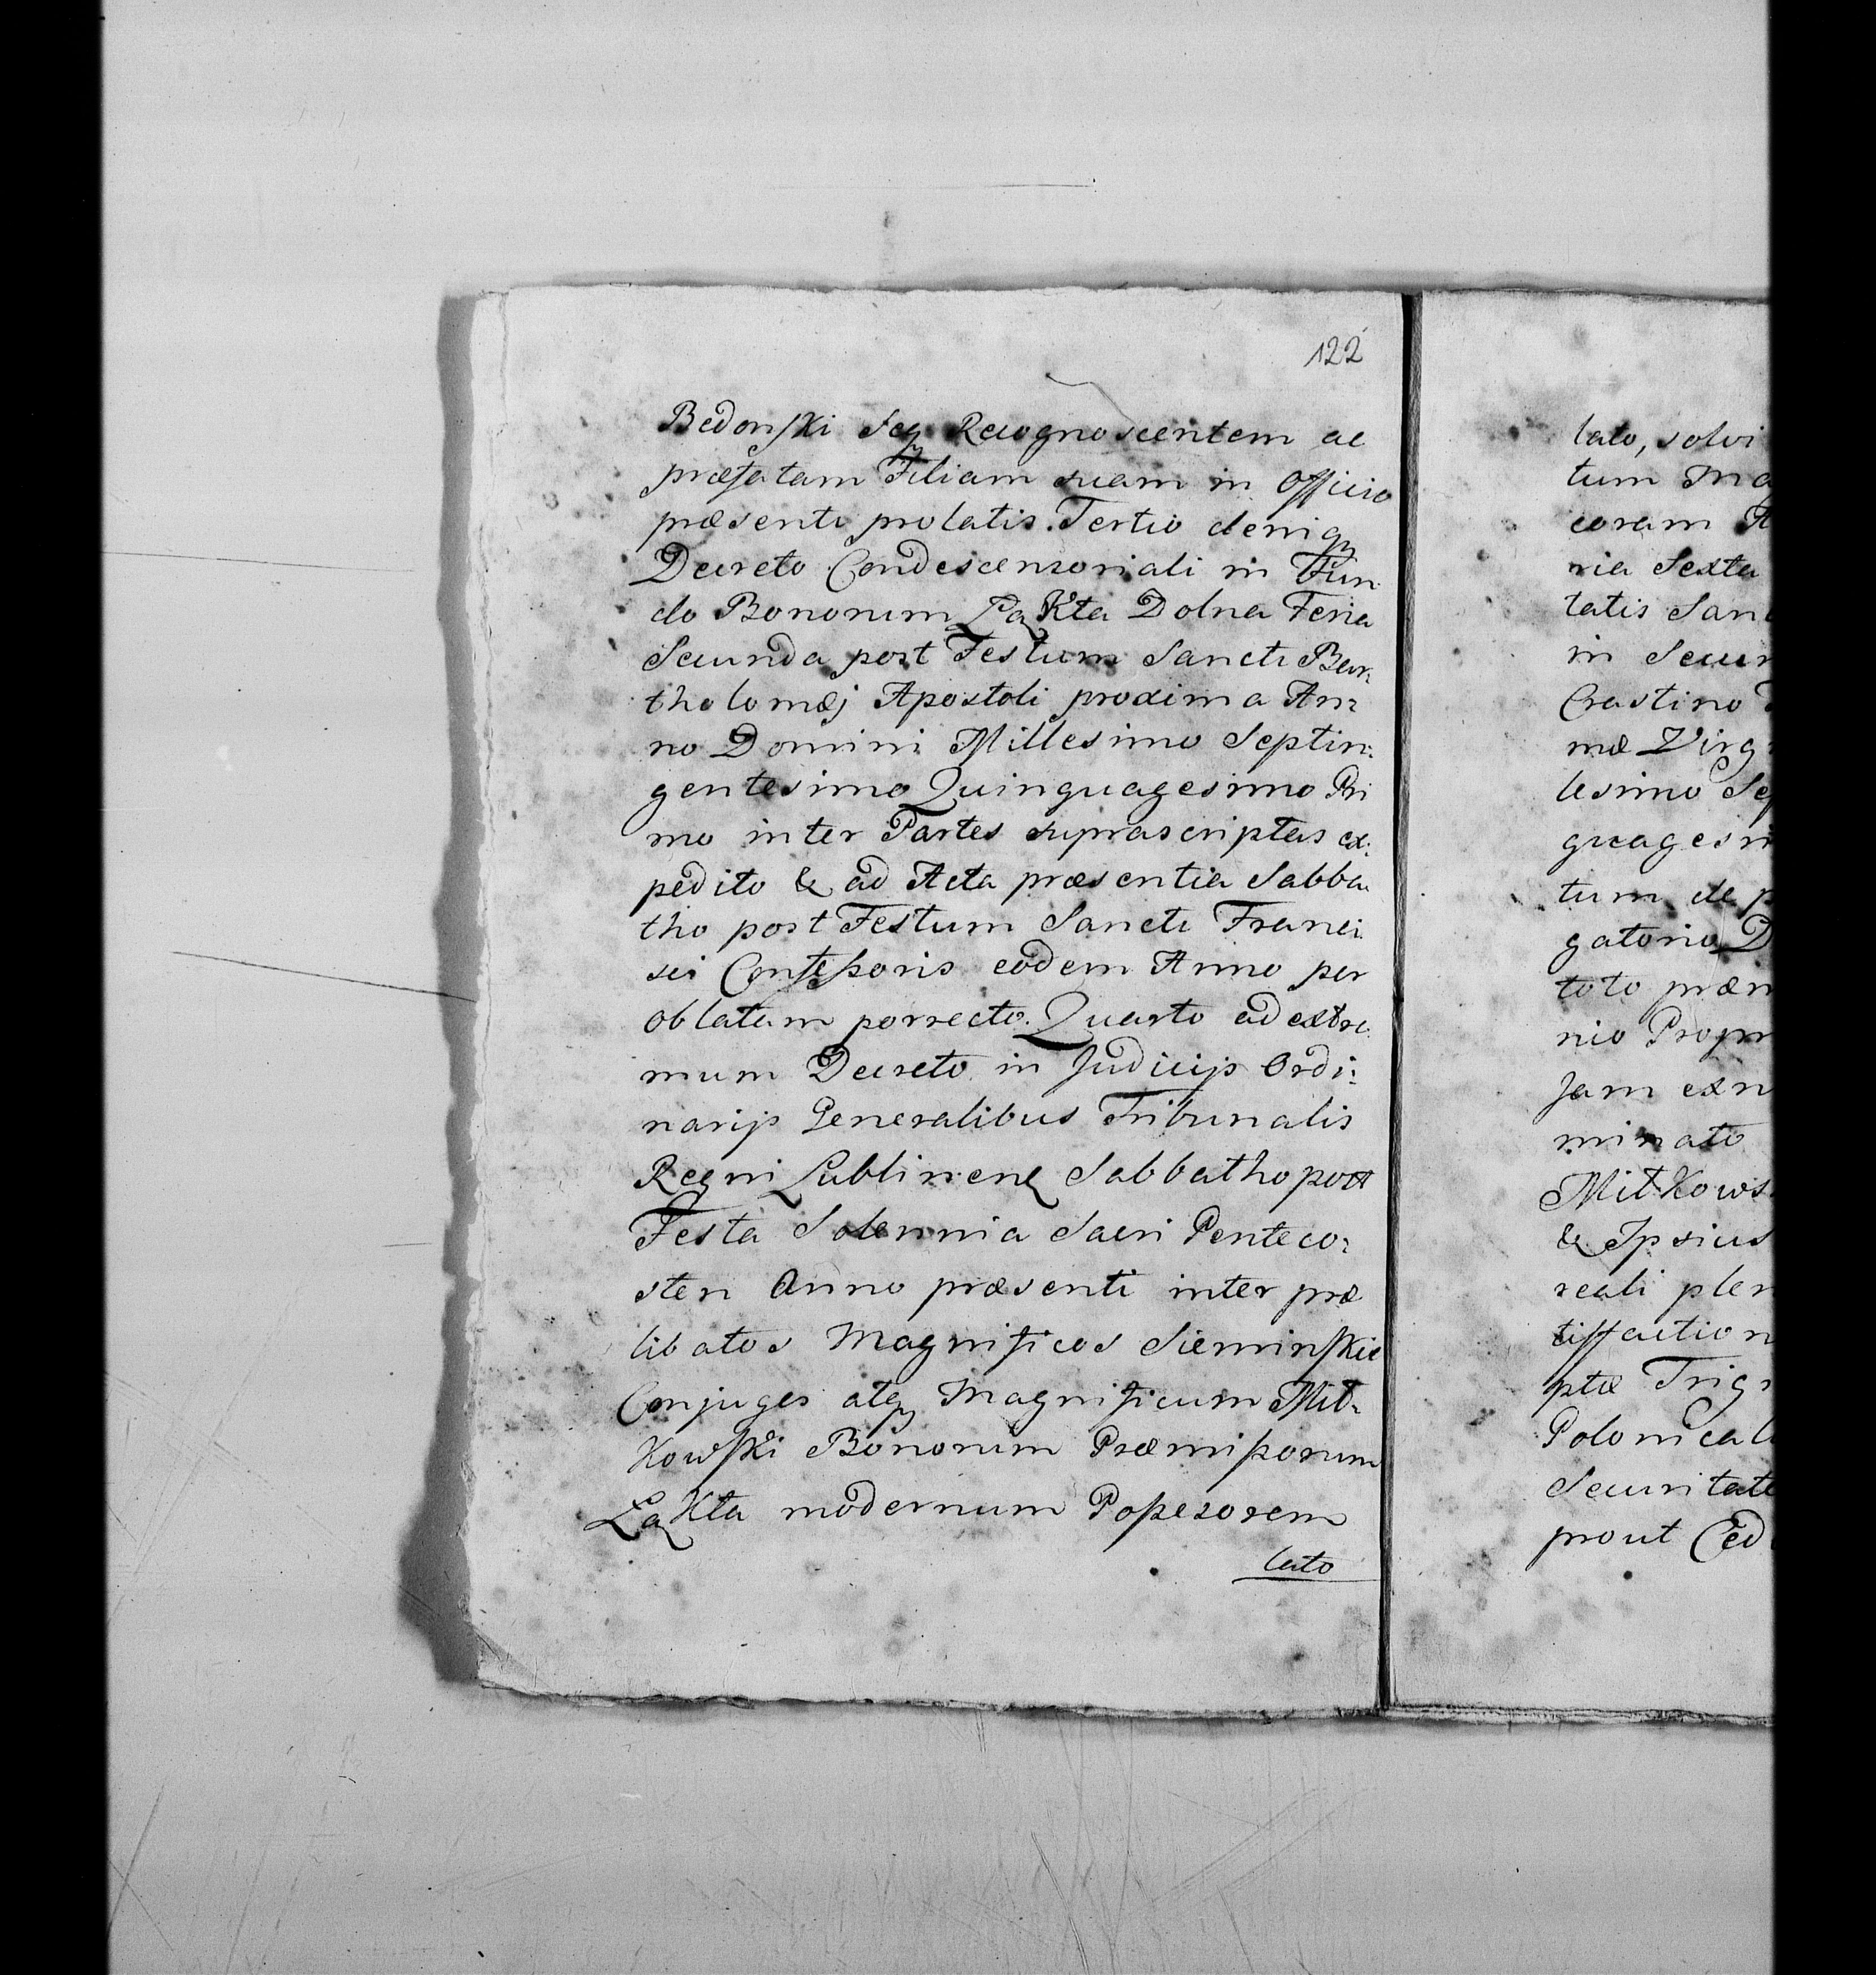 122
Bedonski seq Recognoscentem ac
præfatam Filiam suam in Officio
præsenti prolatis. Tertio deniq
Decreto Condescensoriali in Fun
do Bonorum Łąkta Dolna Feria
Secunda post Festum Sancti Bar
tholomæj Apostoli proxima An:
no Domini Millesimo Septin:
gentesimo Quinquagesimo Pri
mo inter Partes suprascriptas ex:
pedito & ad Acta præsentia Sabba
tho post Festum Sancti Franci
sci Confessoris eodem Anno per
oblatam porrecto. Quarto ad extre
mum Decreto in Judicijs Ordi:
narijs Generalibus Tribunalis
Regni Lublinenę Sabbatho post
Festa Solennia Sacri Penteco:
sten Anno præsenti inter præ
libatos Magnificos Sieminskie
Conjuges atq Magnificum Mit:
kowski Bonorum Præmissorum
Łąkta modernum Possesorem
lato
lato, solvi
tum Ma
coram A
ria Sexta
tatis San
in Secur
Crastino
mæ Virg
lesimo Sep
quagesi
tum de p
gatorio D
toto præm
nio Propr
Jam exn
minato
Mitkows
& Ipsius
reali plen
tisfaction
ptæ Trig
Polonical
Securitate
prout Ced